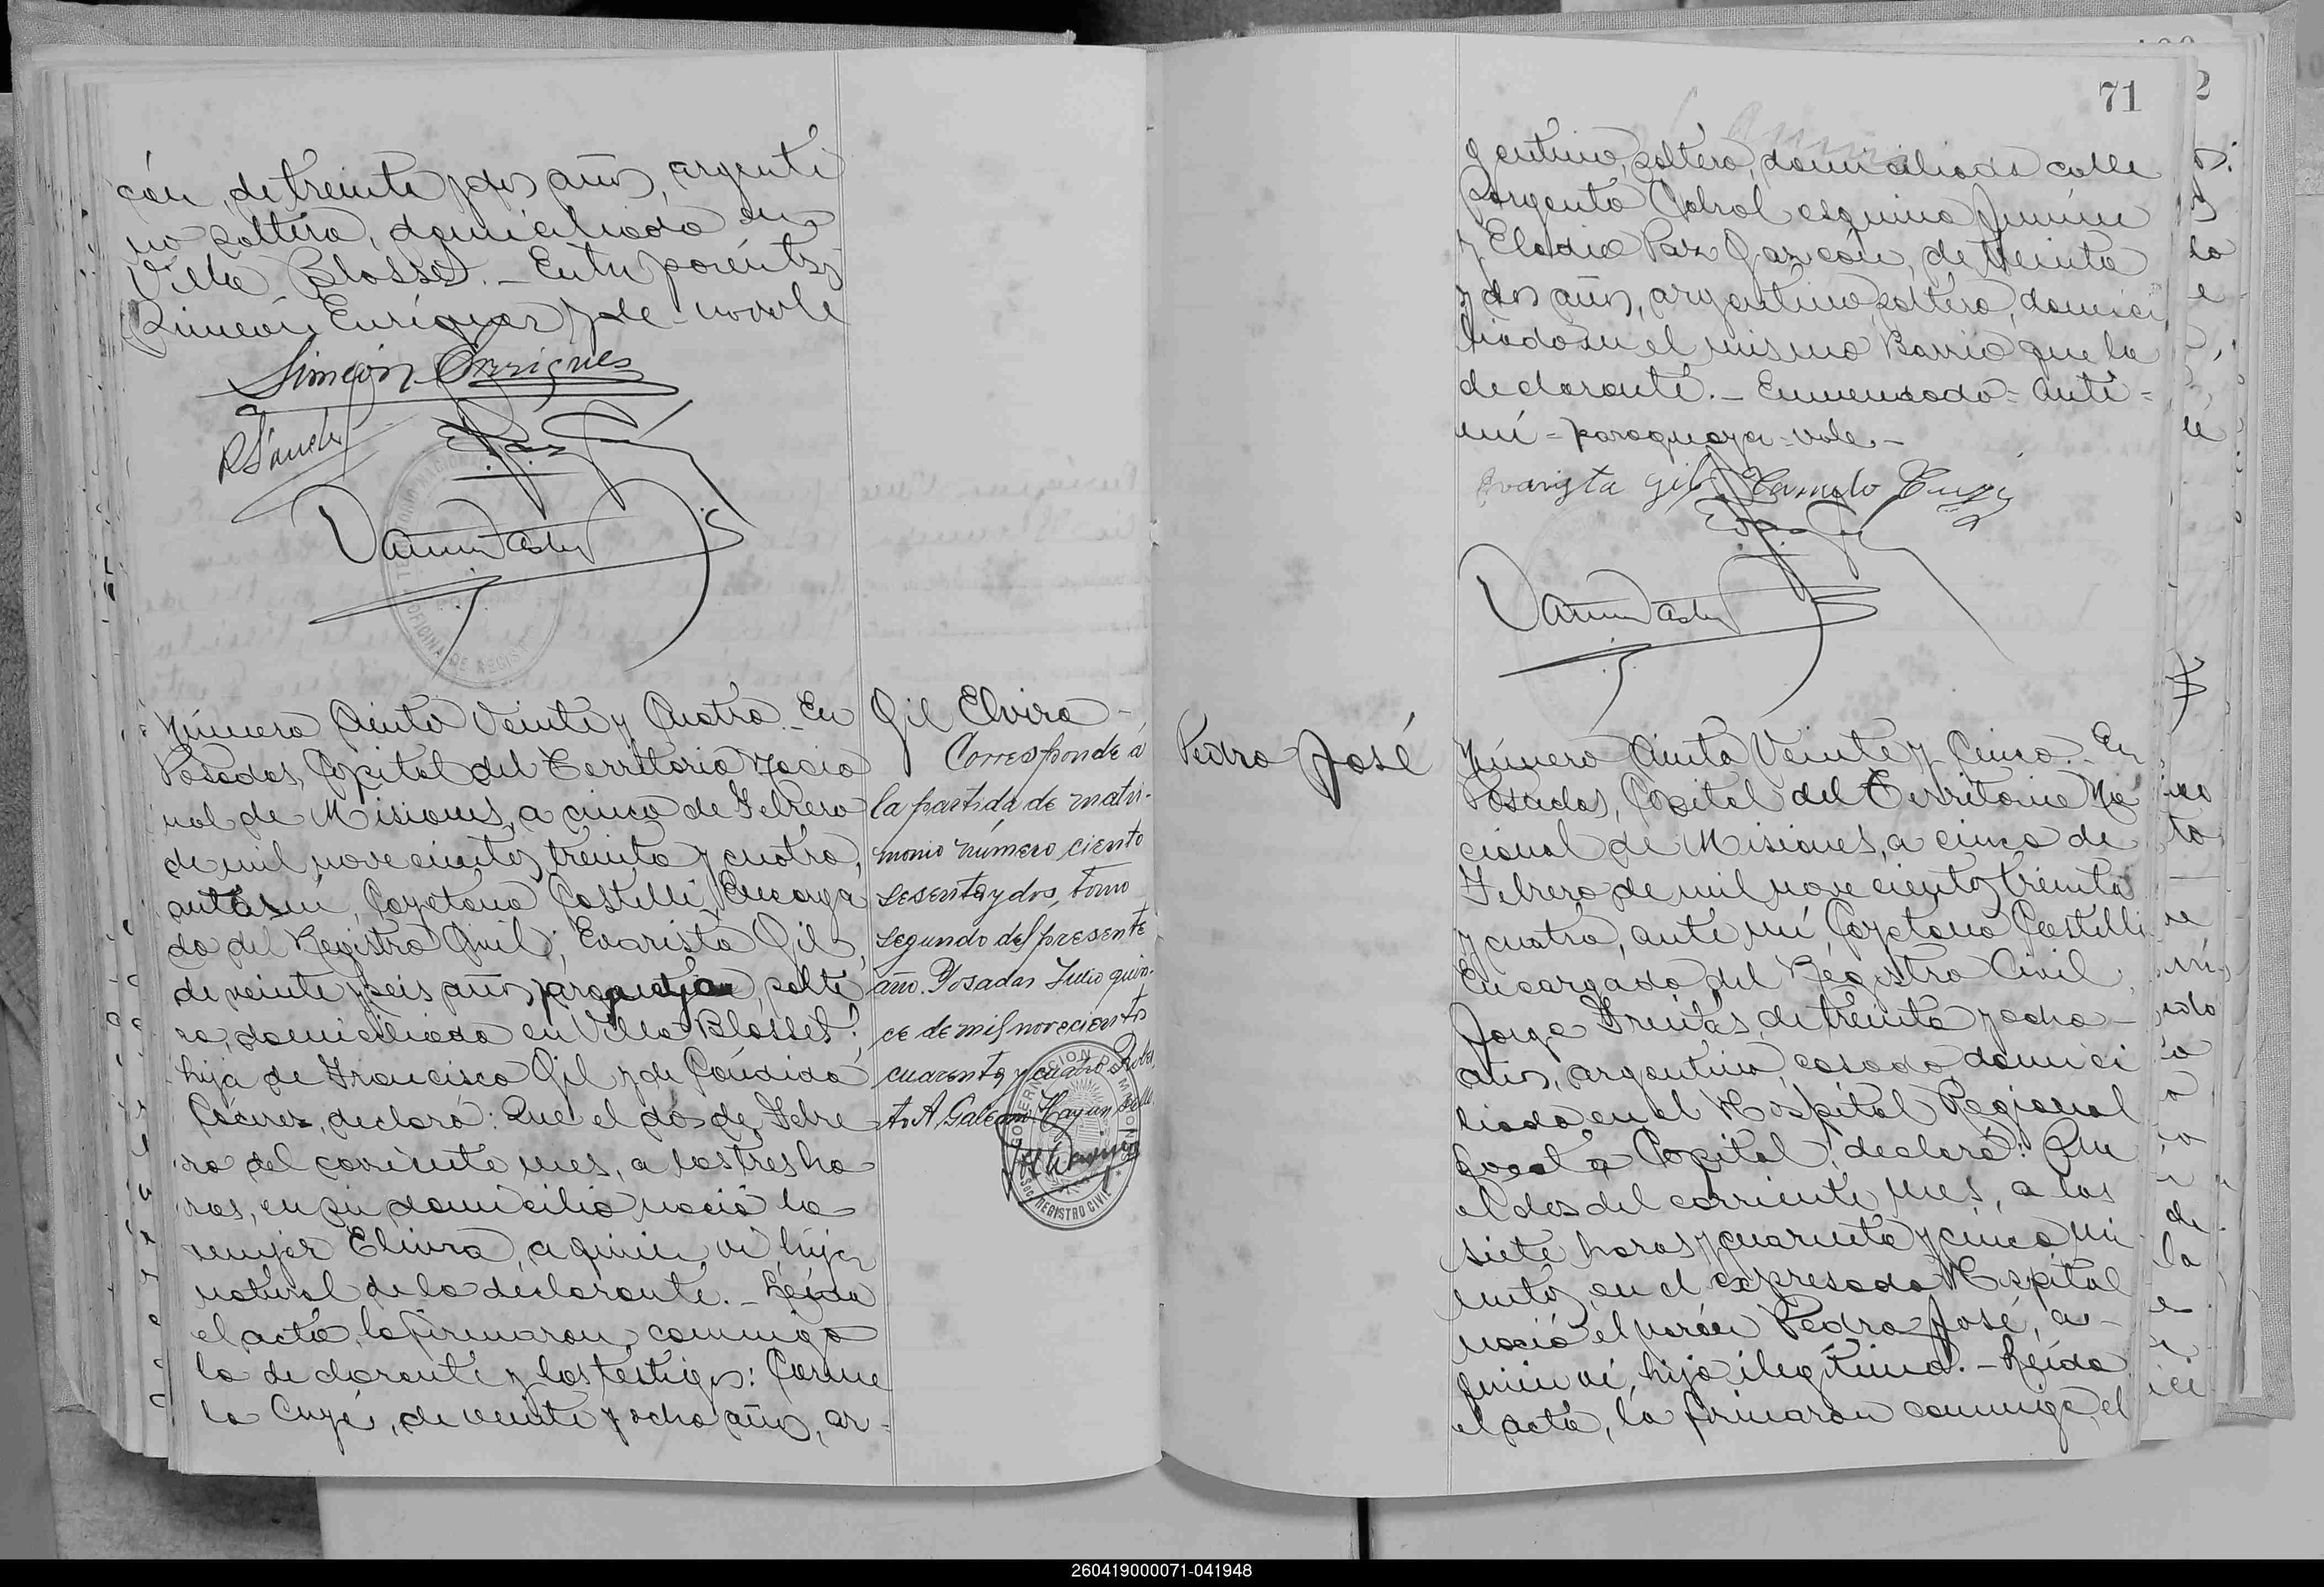 cón, de treinta y dos años, argenti
no soltero, domiciliado en
Villa Blosset.- Entre paréntesis
Simeón Enríquez y de- no vale
Simeón Enrriques
R Sánchez
Número Ciento Veinte y Cuatro.- En
Posadas, Capital del Territorio Nacio
nal de Misiones, a cinco de Febrero
de mil novecientos treinta y cuatro,
ante mí, Cayetano Castelli, Encarga
do del Registro Civil; Evarista Gil,
de veinte y seis años, paraguaya, solte
ra, domiciliada en Villa Blosset;
hija de Francisco Gil y de Cándida
Cáceres, declaró: Que el dos de Febre
ro del corriente mes, a las tres ho
ras, en su domicilio nació la
mujer Elvira, a quien ví, hija
natural de la declarante.- Leída
el acta, la firmaron conmigo
la declarante y los testigos: Carme
lo Cuyé, de veinte y ocho años, ar=
Gil Elvira-
Corresponde a
la partida de matri-
monio número ciento
sesenta y dos, tomo
segundo del presente
año. Posadas Julio quin-
ce de mil novecientos
cuarenta y cuatro Rober
to A Galeano
GOBERNACION DE MISIONES
REGISTRO CIVIL
71
gentino, soltero, domiciliado calle
Sargento Cabral esquina Junín
y Eladio Paz Gazcón, de treinta
y dos años, argentino, soltero, domici
liado en el mismo Barrio que la
declarante.- Enmendado= ante=
mí= paraguaya= vale.-
Evarista Gil
Número Ciento Veinte y Cinco.- En
Posadas, Capital del Territorio Na
cional de Misiones, a cinco de
Febrero de mil novecientos treinta
y cuatro, ante mí, Cayetano Castelli
Encargado del Registro Civil,
Jorge Freitas, de treinta y ocho
años, argentino, casado, domici
liado en el Hospital Regional
Capital, declaró: Que
el dos del corriente mes, a las
siete horas y cuarenta y cinco mi
nutos, en el expresado Hospital
nació el varón Pedro José, a-
quien ví, hijo ilegítimo.- Leída
el acta, la firmaron conmigo, el
Pedro José
260419000071-041948